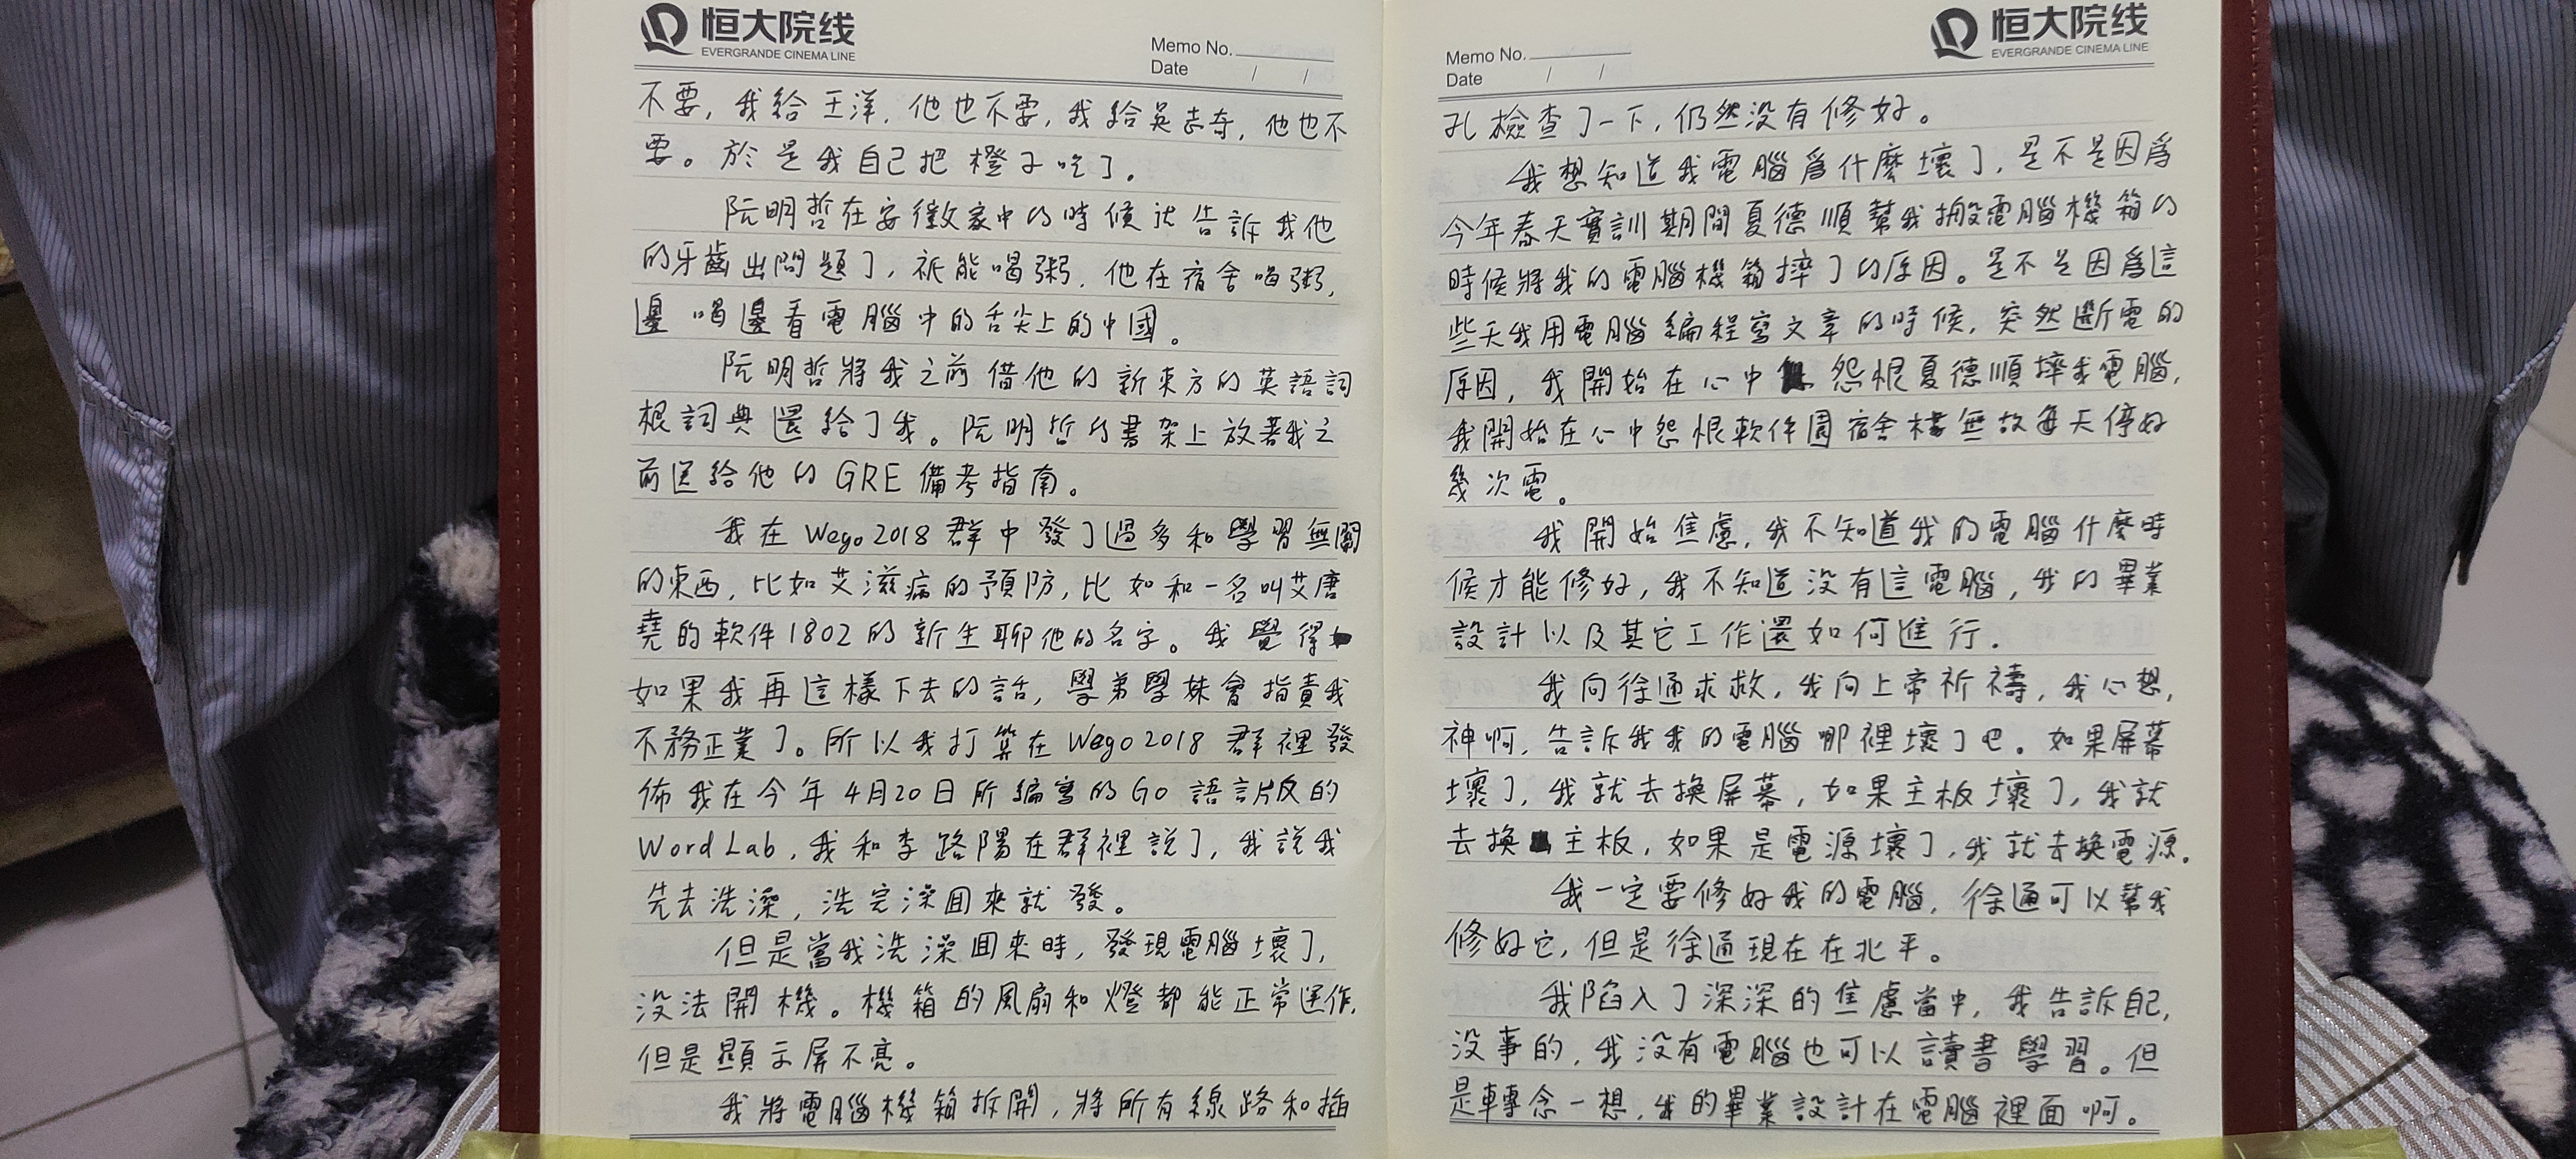 恒大院线
EVERGRANDE CINEMA LINE
Memo No.
Date / /
不要，我給王洋，他也不要，我給吳志奇，他也不
要。於是我自己把橙子吃了。
阮明哲在安徽家中的時候就告訴我他
的牙齒出問題了，祇能喝粥，他在宿舍喝粥，
邊喝邊看電腦中的舌尖上的中國。
阮明哲將我之前借他的新東方的英語詞
根詞典還給了我。阮明哲的書架上放著我之
前送給他的GRE備考指南。
我在Wego2018群中發了過多和學習無關
的東西，比如艾滋病的預防，比如和一名叫艾唐
堯的軟件1802的新生聊他的名字。我覺得
如果我再這樣下去的話，學弟學妹會指責我
不務正業了。所以我打算在Wego2018群裡發
佈我在今年4月20日所編寫的Go語言版的
WordLab，我和李路陽在群裡說了，我說我
先去洗澡，洗完澡囬來就發。
但是當我洗澡囬來時，發現電腦壞了，
沒法開機。機箱的風扇和燈都能正常運作，
但是顯示屏不亮。
我將電腦機箱拆開，將所有線路和插
恒大院线
EVERGRANDE CINEMA LINE
Memo No.
Date / /
孔檢查了一下，仍然没有修好。
我想知道我電腦爲什麼壞了，是不是因爲
今年春天實訓期間夏德順幫我搬電腦機箱的
時候將我的電腦機箱摔了的原因。是不是因爲這
些天我用電腦編程寫文章的時候，突然斷電的
原因，我開始在心中怨恨夏德順摔我電腦，
我開始在心中怨恨軟件園宿舍樓無故每天停好
幾次電。
我開始焦慮，我不知道我的電腦什麼時
候才能修好，我不知道没有這電腦，我的畢業
設計以及其它工作還如何進行.
我向徐通求救，我向上帝祈禱，我心想，
神啊，告訴我我的電腦哪裡壞了吧。如果屏幕
壞了，我就去換屏幕，如果主板壞了，我就
去換主板，如果是電源壞了，我就去換電源.
我一定要修好我的電腦，徐通可以幫我
修好它，但是徐通現在在北平。
我陷入了深深的焦慮當中，我告訴自己，
没事的，我没有電腦也可以讀書學習。但
是轉念一想，我的畢業設計在電腦裡面啊。